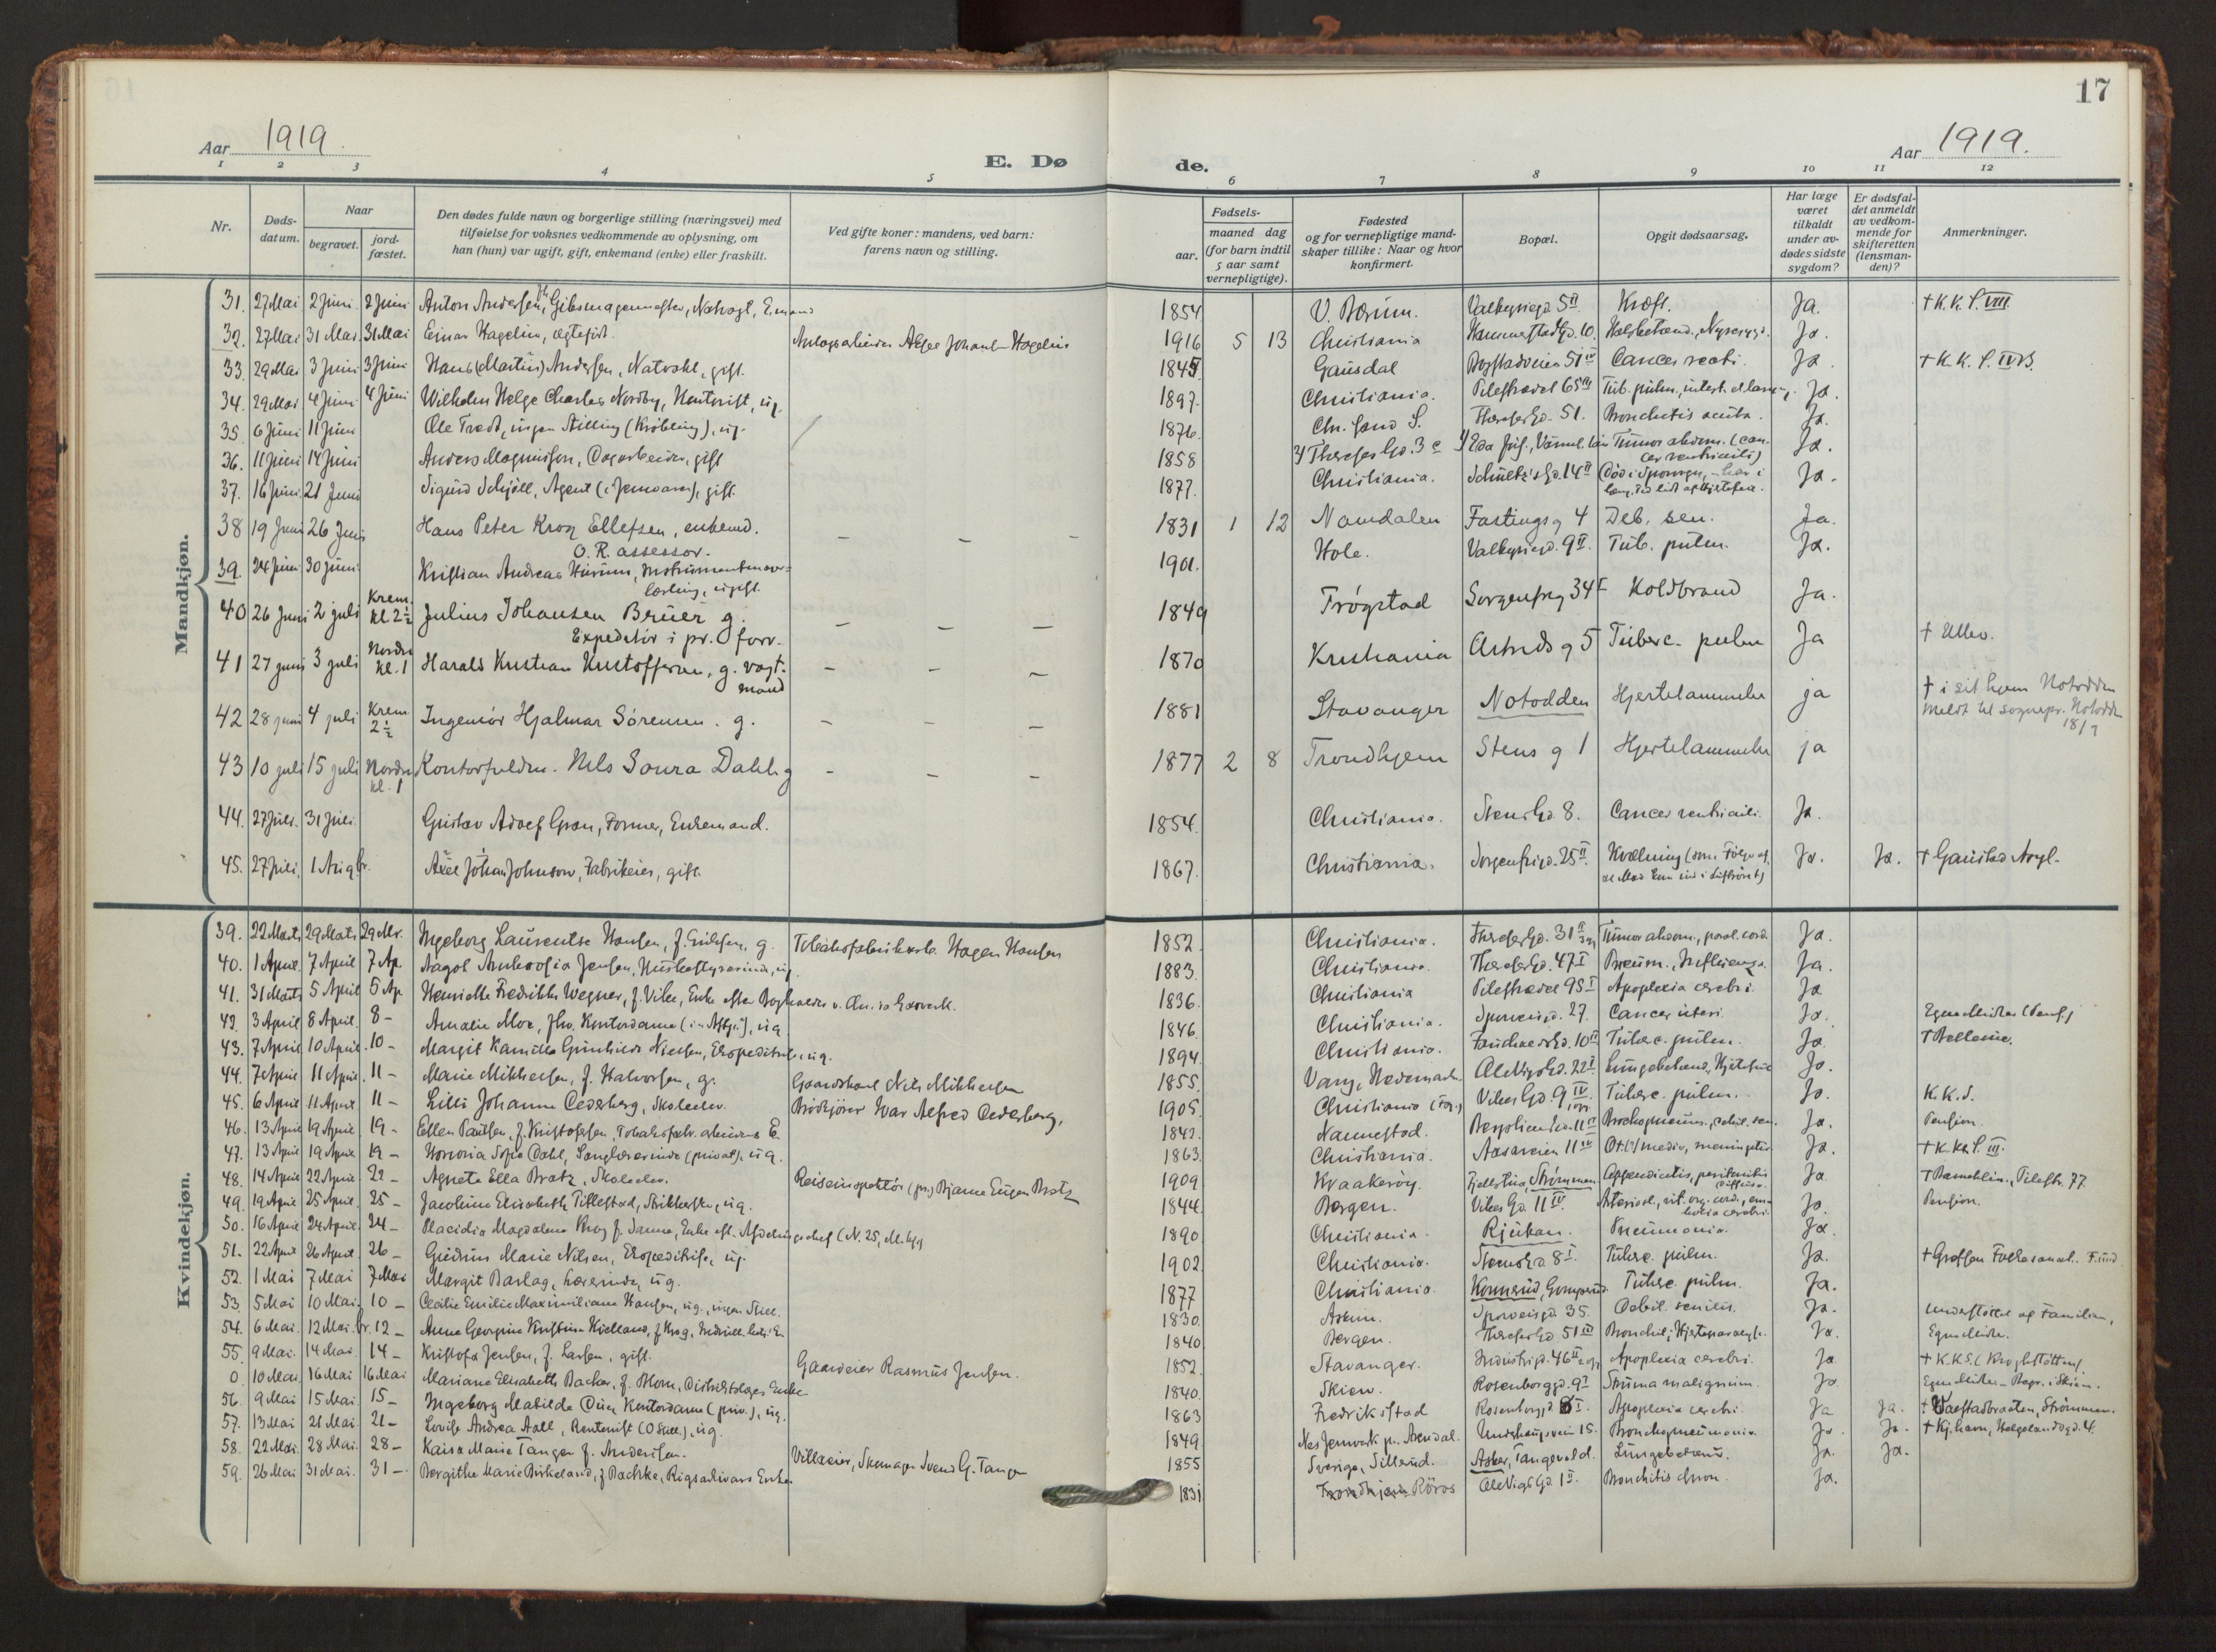 17
Aar 1919.
E. Døde.
Aar 1919.
1 2 3 4 5 6 7 8 9 10 11 12
Nr.
Døds-datum.
Naar
begravet.
jord-fæstet.
Den dødes fulde navn og borgerlige stilling (næringsvei) med
tilføielse for voksnes vedkommende av oplysning, om
han (hun) var ugift, gift, enkemand (enke) eller fraskilt.
Ved gifte koner: mandens, ved barn:
farens navn og stilling.
Fødsels-
aar.
maaned dag
(for barn indtil
5 aar samt
vernepligtige).
Fødested
og for vernepligtige mand-
skaper tillike: Naar og hvor
konfirmert.
Bopæl.
Opgit dødsaarsag.
Har læge
været
tilkaldt
under av-
dødes sidste
sygdom?
Er dødsfal-
det anmeldt
av vedkom-
mende for
skifteretten
(lensman-
den)?
Anmerkninger.
Mandkjøn.
31. 27 Mai 2 Juni 2 Juni Anton Andersen, Gibsmagermester, Natvagt, E.mand 1854 V. Bærum. Valkyriegd. 5 II Kræft. Ja. † K. K. S. VIII.
32. 27 Mai 31 Mai 31 Mai Einar Hagelin, ægtefødt. Hagelin 1916 5 13 Christiania Hammerstadgd. 10. Ja.
33. 29 Mai 3 Juni 3 Juni Hans (Martin) Andersen, gift. 1845 Gausdal Bogstadveien 51 IV Cancer recti. Ja † K. K. S. IV B.
34. 29 Mai 4 Juni 4 Juni Wilhelm Helge Charles Nordby, Kontorist, ug. 1897. Christiania. Pilestrædet 65 III Tub. pulm., intest. et laryng. Ja.
35. 6 Juni 11 Juni Ole Tredt, ingen Stilling (Krøbling), ug. 1876. Chr. sand S. Theresesgd. 51. Bronchitis acuta. Ja.
36. 11 Juni 14 Juni Anders Magnussen, Dagarbeider, gift 1858 2) Theresesgd. 3 c 1) Eda Tumor abdom. (cancer ventriculi) Ja.
37. 16 Juni 21 Juni Sigurd Schjöll, Agent (i Jernvarer), gift. 1877. Christiania. Schultz's gd. 14 II Død i Sporvogn, – har i
længre Tid lidt af Hjertefeil. Ja.
38 19 Juni 26 Juni Hans Peter Krog Ellefsen, enkemd.
O. R. assessor. – – – 1831 1 12 Namdalen Fastings g 4 Deb. sen. Ja.
39. 24 Juni 30 Juni Kristian Andreas Hurum, Instrumentmager-
lærling, ugift. 1901. Hole. Valkyriegd. 9 II. Tub. pulm. Ja.
40 26 Juni 2 juli Krem. kl 2 ½ Julius Johansen Brüer g.
Expeditör i pr. forr. – – – 1849 Trögstad Sorgenfrig 34 I Koldbrand Ja.
41 27 juni 3 juli Nordre kl. 1 Harald Kristian Kristoffersen, g. vagt-
mand – – – 1870 Kristiania Astrids g 5 Tuberc. pulm Ja † Ullev.
42 28 juni 4 juli Krem. 2 ½ Ingeniör Hjalmar Sörensen. g. – – – 1881 Stavanger Notodden Hjertelammelse ja † i sit hjem Notodden
meldt til sognepr. Notodden
18/7
43 10 juli 15 juli Nordre kl. 1 Kontorfuldm. Nils Soura Dahl g – – – 1877 2 8 Trondhjem Stens g 1 Hjertelammelse ja
44. 27 Juli. 31 Juli. Gustav Adolf Gran, Former, Enkemand. 1854. Christiania. Stensgd. 8. Cancer ventriculi. Ja.
45. 27 Juli. 1 Aug. br. Axel Johan Johnson, Fabrikeier, gift. 1867. Christiania. Sorgenfrigd. 25 II. Kvælning (som Følge af,
at Mad kom ind i Luftröret) Ja. Ja. † Gaustad Asyl.
Kvindekjøn.
39. 22 Marts 29 Marts 29 Mr. Ingeborg Laurentse Hansen, f. Eriksen, g. Tobaksfabrikarb. Hagen Hansen 1852 Christiania. Theresesgd. 31 II Tumor abdom., paral. cord. Ja.
40. 1 April 7 April 7 Ap. Aagot Jensen, Husbestyrerinde, ug. 1883. Christiania. Theresesgd. 47 I Pneum., Influenza. Ja.
41. 31 Marts 5 April 5 Ap Henriette Fredrikke Wegner, f. Vibe, Enke efter Bogholder v. Chr.ia Gasverk. 1836. Christiania Pilestrædet 95 I Apoplexia cerebri. Ja
42. 3 April 8 April. 8 – Amalie Moe, Kontordame, ug. 1846. Christiania. Sporveisgd. 27. Cancer uteri. Ja. Egne Midler (Pens.)
43. 7 April 10 April. 10 – Margit Kamilla Gunhild Nielsen, Expeditrice, ug. 1894. Christiania. Fauchaldsgd. 10 II Tuberc. pulm. Ja.
44. 7 April 11 April. 11 – Marie Mikkelsen, f. Halvorsen, g. Gaardskarl Nils Mikkelsen 1855. Vang, Hedemarken. Ole Vigs Gd. 22 I. Lungebetænd., Hjertefeil Ja.
45. 6 April 11 April 11 – Lilli Johanne Cederberg, Skoleelev. Brödkjörer Ivar Alfred Cederberg. 1905. Christiania Vibes Gd. 9 IV Tuberc. pulm. Ja. K. K. S.
46. 13 April 19 April. 19 – Ellen Paulsen, f. Kristofersen, Tobaksfabr. arbeiders E. 1842. Nannestad. Bergsliens Gd. 11 II Bronchopneum., debil. sen. Ja. Pension.
47. 13 April 19 April 19 – Honoria Sofie Dahl, Sanglærerinde (privat), ug. 1863. Christiania. Aasaveien 11 Ot.(?) media, meningitis Ja. † K. K. S. III.
48. 14 April 22 April 22 – Agnete Ella Bratz, Skoleelev. Reiseinspektör (pr.) Bjarne Eugen Bratz 1909 Kvaakeröy. Fjellstua, Strömmen Appendicitis, peritonitis
diffusa. Ja † Pilestr. 77.
49. 19 April 25 April 25 – Jacobine Elisabeth Tillestad, Strikkerske, ug. 1844. Bergen. Vibes Gd. 11 IV. Arteriosl., vit. org. cord., em-
bolia cerebri. Ja. Pension.
50. 16 April 24 April. 24 – Placidia Magdalena Krog f. Sanne, Enke eft. Afdelingschef (N. 25, M. 1890 Christiania. Rjukan. Pneumonia. Ja.
51. 22 April 26 April. 26 – Gudrun Marie Nilsen, Expeditrice, ug. 1902. Christiania. Stensgd. 8 I. Tuberc. pulm. Ja. † Grefsen Folkesanat.
52. 1 Mai 7 Mai 7 Mai Margit Barlag, Lærerinde, ug. 1877 Christiania. Kornerud, Tuberc. pulm. Ja.
53. 5 Mai 10 Mai. 10 – Cecilie Emilie Maximiliane Hansen, ug., ingen Still. 1830. Asker. Sporveisgd. 35. Debil. senilis. Ja. Understöttet af Familien.
54. 6 Mai. 12 Mai. br. 12 – Anne Georgine Kristine Kielland, f. Krog, E. 1840. Bergen. Theresesgd 51 III Bronchit., Hjerteparalyse. Ja. Egne Midler.
55 9 Mai. 14 Mai. 14 – Kristofa Jensen, f. Larsen, gift. Gaardeier Rasmus Jensen. 1852. Stavanger. Industrigd. 46 II Apoplexia cerebri. Ja † K. K. S. (Krogstötten).
0. 10 Mai. 16 Mai 16 Mai Mariane Elisabeth Backer, f. Blom, Distriktslæges Enke 1840. Skien. Rosenborggd. 9 I Struma malignum. Ja. Egne Midler – Begr. i Skien.
56. 9 Mai 15 Mai. 15 – Ingeborg Mathilde Due, Kontordame (priv.), ug. 1863 Fredrikstad Rosenborggd. 8 I. Apoplexia cerebri. Ja Ja. Strömmen.
57. 13 Mai 21 Mai. 21 – Lovise Andrea Aall, Rentenist (0 Still), ug. 1849 Nes Jernverk pr. Arendal. Underhaugsvn 15. Bronchopneumonia. Ja Ja. † Kj.havn, Helgolandsgd. 4.
58. 22 Mai. 28 Mai. 28 – Kaisa Marie Tangen f. Andersen. Villaeier, Skomager Svend G. Tangen 1855 Sverige, Sillerud. Asker, Tangevold. Lungebetænd. Ja. Ja.
59. 26 Mai 31 Mai. 31 – Bergithe Marie Birkeland, f. Bachke, Rigsarkivars Enke 1831 Trondhjem Röros Ole Vigs Gd. 1 II. Bronchitis chron. Ja.